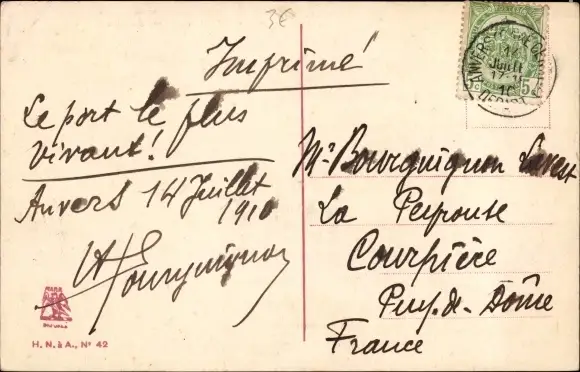 3€
Imprimé
Le port le plus
vivant!
Anvers 14 Juillet
1910
Bourguignon
H. N. à A., Nº 42
5
ANVERS
14
JUIL
DEPART
Mr Bourguignon
La Peyrouse
Courpière
Puy-de-Dôme
France